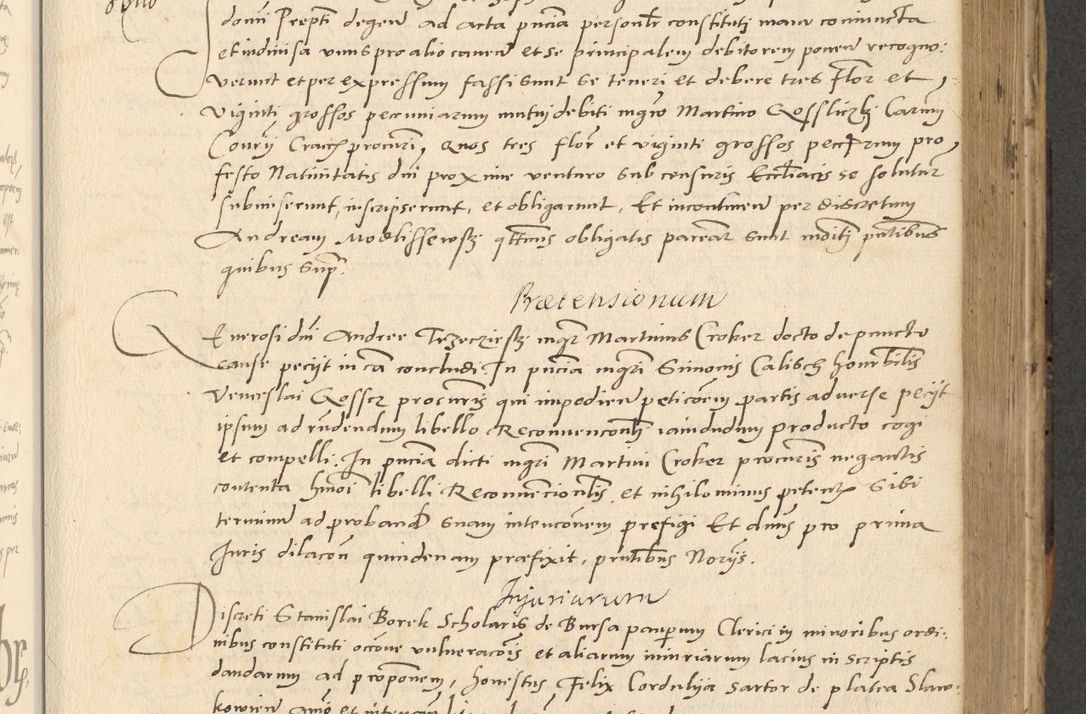 domi Prepti degen ad acta pncia personlr constituti manu coniuncta
et indiuisa unus pro alio cauen et se principalem debitorem ponen recogno:
verunt et per expressum fassi sunt se teneri et debere tres flor et
viginti grossos pecuniarum mutui debiti mgro Martino Gossliczki Carum
Coury Cracn procuri, quos tres flor et viginti grossos pecrum pro
festo Natiuitatis dni proxime venturo sub censuris Eccliacis se soluturr
submiserunt, inscripserunt, et obligarunt, Et incontinen per discretum
Andream Modlissewsky obligatis parear sunt moditi pntibus
quibus supr.
Prætensionum
Generosi dni Andree Trzeczieski mgr Martinus Croker docto de puncto
cause pecyt in ca concludi In pncia mgri Simonis Calisch honrbilis
Venceslai Gosscz procuris qui impedien peticoem partis aduerse pecyt
ipsum ad rndendum libello Reconuencionli iamdudum producto cogi
et compelli. In pncia dicti mgri Martini Croker procuris negantis
contenta hmoi libelli Reconuencionlis et nihilominus petent sibi
terminum ad proband suam intenconem prefigi Et dnus pro prima
Juris dilacon quindenam præfixit, pntibus Norys.
Injuriarum
Discreti Stanislai Borek Scholaris de Bursa paupum Clerici in minoribus ordi:
nibus constituti occone vulneracois et aliarum iniuriarum lacius in scriptis
dandarum ad proponem, honestus Felix Cordulya sartor de platea Slaw: